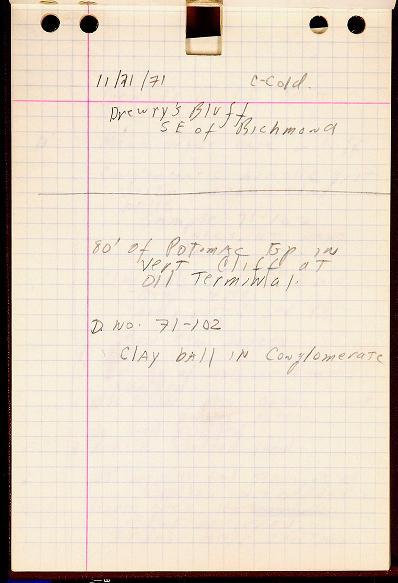 11/21/71 C-Cold.
Drewry's Bluff
SE of Richmond
80' of Potomac Exp in
Vert Cliff at
Oil Terminal.
D. No. 71-102
Clay ball in Conglomerate